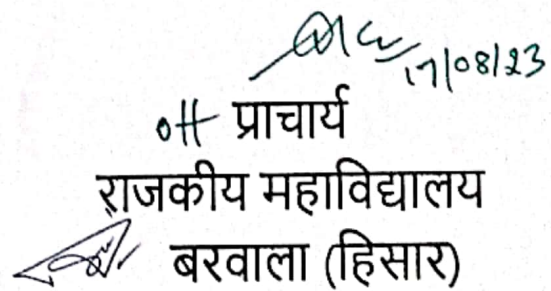 17/08/23
off प्राचार्य
राजकीय महाविद्यालय
बरवाला (हिसार)